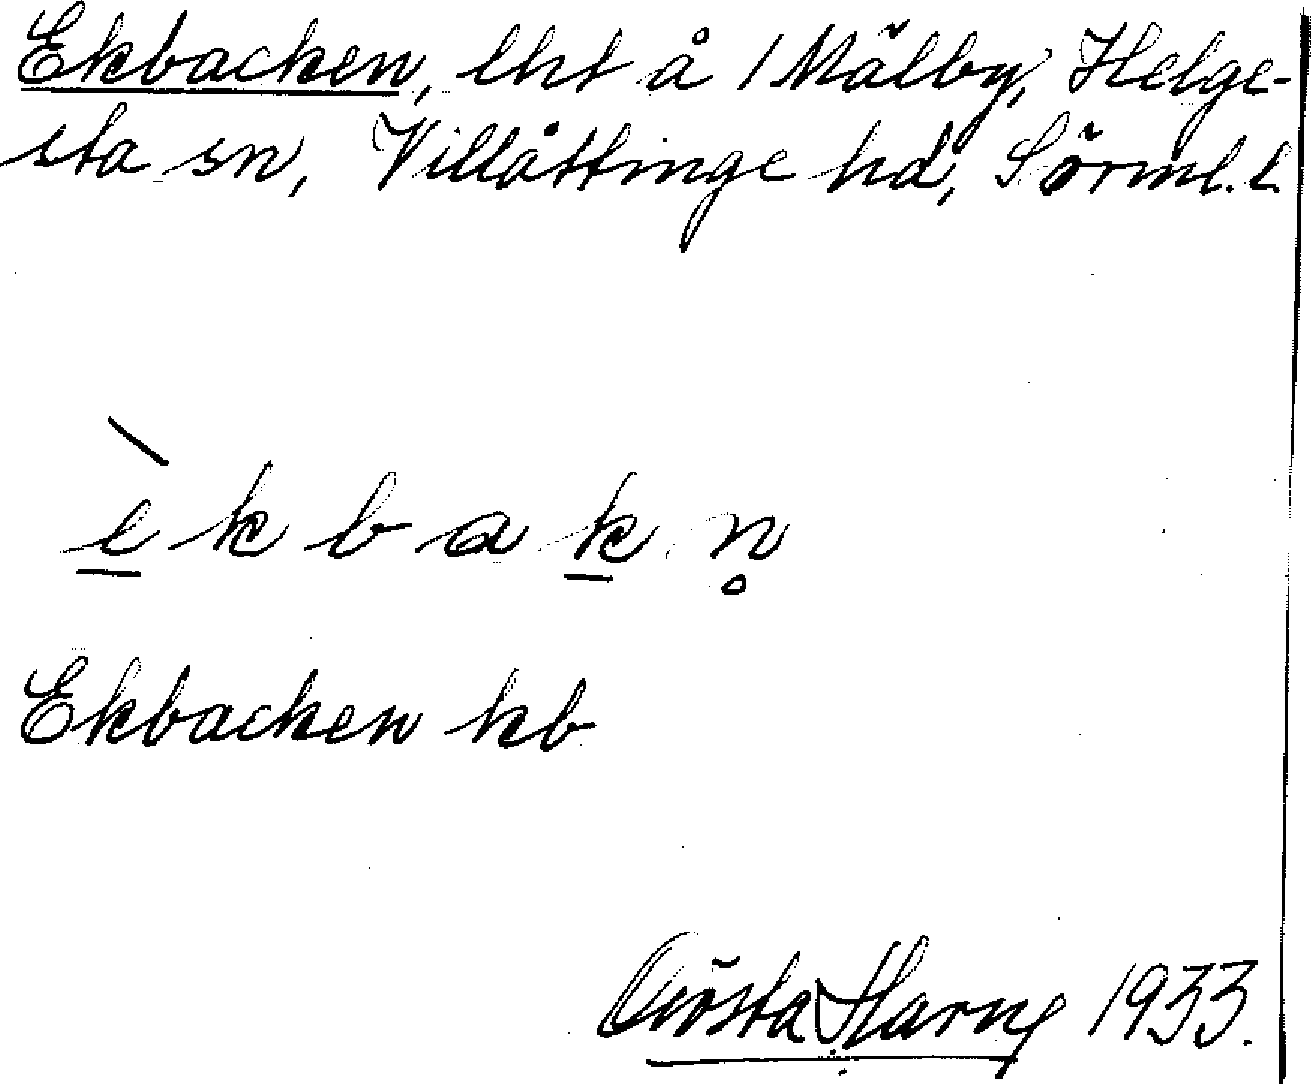 Ekbacken, lht å /Mälby, Helge-
sta sn, Villåttinge hd, Sörml. l.
è k b a k n̥
Ekbacken kb
Gösta Harng 1933.